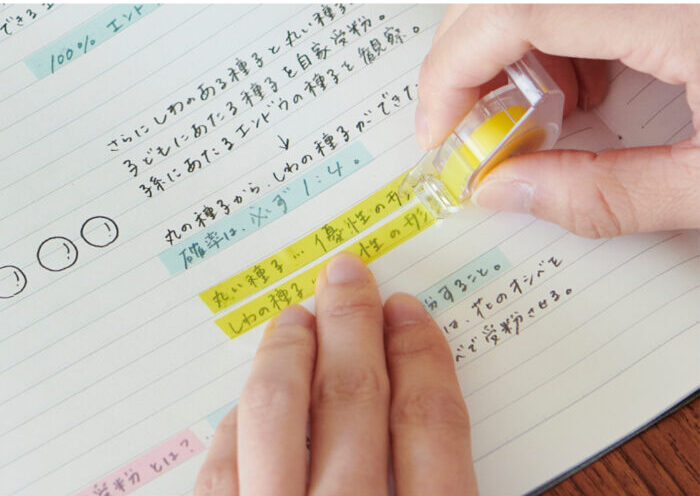 できるエ
100% エンド
さらにしわのある種子と丸い種子
子どもにあたる種子を自家受粉。
孫にあたるエンドウの種子を観察。
↓
丸の種子から、しわの種子ができた
確率は、必ず1:4。
丸い種子… 優性の
しわの種子… 性の
粉すること。
は、花のオシベを
べで受粉させる。
受粉とは?